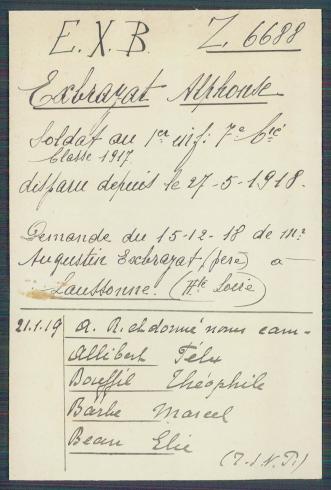 E.X.B. Z. 6688
Exbrayat Alphonse
Soldat au 1er inf: 7e Cie
Classe 1917.
disparu depuis le 27-5-1918.
Demande du 15-12-18 de mr
Augustin Exbrayat (père) à
Laussonne. (Hte Loire)
21.1.19 A. R. et donné noms cam-
Allibert Félix
Bouffil Théophile
Barbe Marcel
Bean Elie
(T.I.N.P.)